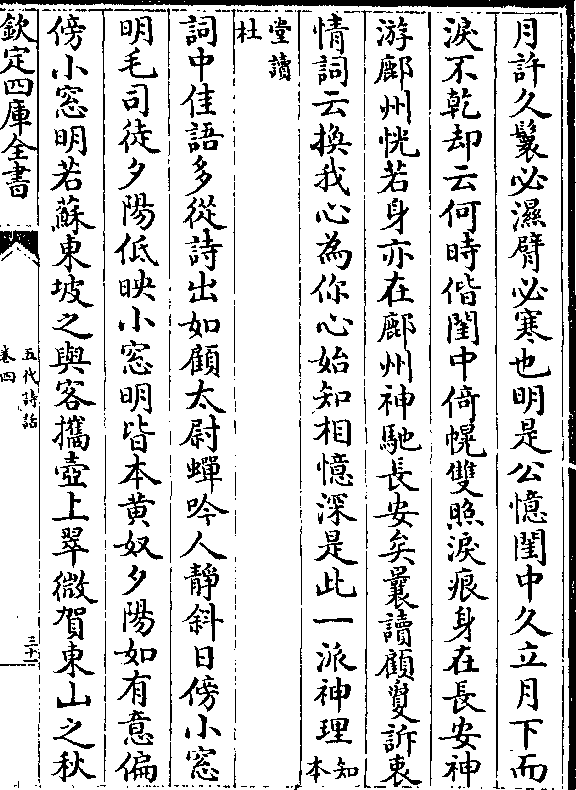 月許久鬟必濕臂必寒也明是公憶閨中久立月下而
淚不乾却云何時偕閨中倚幌雙照淚痕身在長安神
游鄜州恍若身亦在鄜州神馳長安矣曩讀顧敻訴衷
情詞云換我心為你心始知相憶深是此一派神理知本
堂讀杜
詞中佳語多從詩出如顧太尉蟬吟人靜斜日傍小窓
明毛司徒夕陽低映小窓明皆本黄奴夕陽如有意偏
傍小窓明若蘇東坡之與客攜壺上翠微賀東山之秋
欽定四庫全書
五代詩話
卷四
三十一